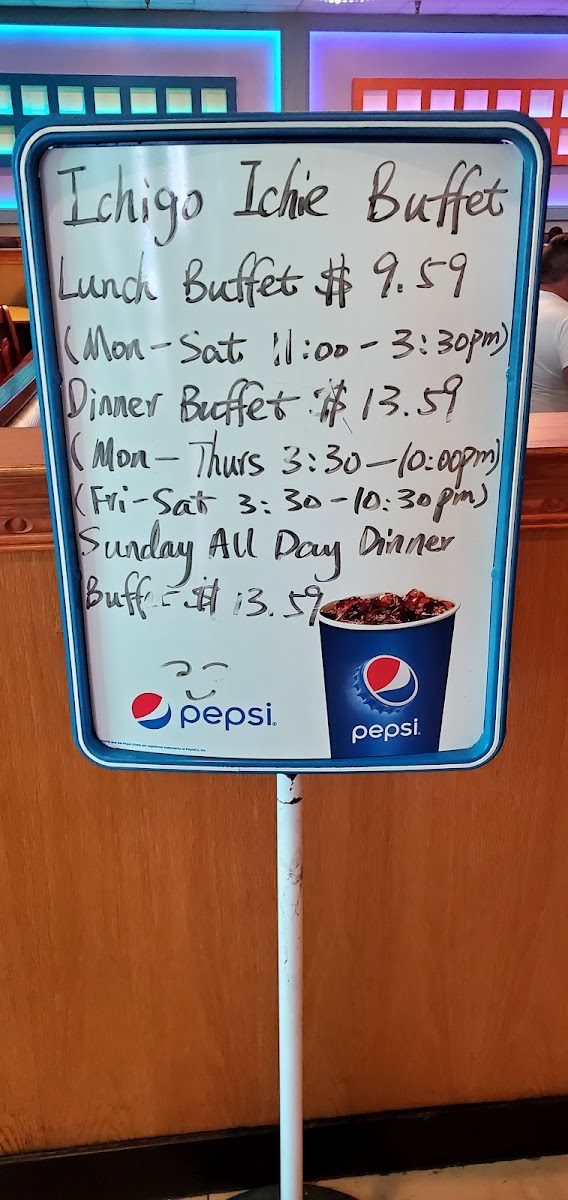 Ichigo Ichie Buffet
Lunch Buffet $ 9.59
(Mon-Sat 11:00 - 3:30pm)
Dinner Buffet $ 13.59
(Mon - Thurs 3:30 - 10:00pm)
(Fri-Sat 3:30 - 10:30pm)
Sunday All Day Dinner
Buffe $ 13.59
pepsi
pepsi